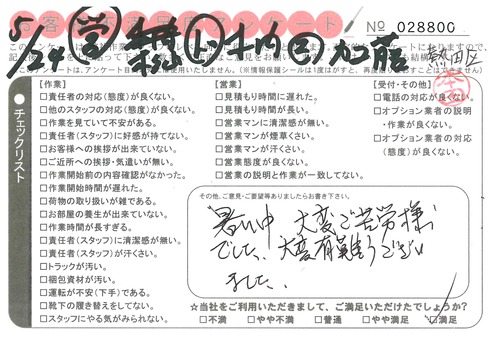 5/24 営 土内 加藤
No 028800
熱田区
チェックリスト
【作業】
□責任者の対応(態度)が良くない。
□他のスタッフの対応(態度)が良くない。
□作業を見ていて不安がある。
□責任者(スタッフ)に好感が持てない。
□お客様への挨拶が出来ていない。
□ご近所への挨拶・気遣いが無い。
□作業開始前の内容確認がなかった。
□作業開始時間が遅れた。
□荷物の取り扱いが雑である。
□お部屋の養生が出来ていない。
□作業時間が長すぎる。
□責任者(スタッフ)に清潔感が無い。
□責任者(スタッフ)が汗くさい。
□トラックが汚い。
□梱包資材が汚い。
□運転が不安(下手)である。
□靴下の履き替えをしてない。
□スタッフにやる気がみられない。
【営業】
□見積もり時間に遅れた。
□見積もり時間が長い。
□営業マンに清潔感が無い。
□営業マンが煙草くさい。
□営業マンが汗くさい。
□営業態度が良くない。
□営業の説明と作業が一致してない。
【受付・その他】
□電話の対応が良くない。
□オプション業者の説明
・作業が良くない。
□オプション業者の対応
(態度)が良くない。
その他、ご意見・ご要望等ありましたらお書き下さい。
暑い中 大変ご苦労様
でした、大変有難うござい
ました、
☆当社をご利用いただきまして、ご満足いただけたでしょうか?
□不満 □やや不満 □普通 □やや満足 □満足